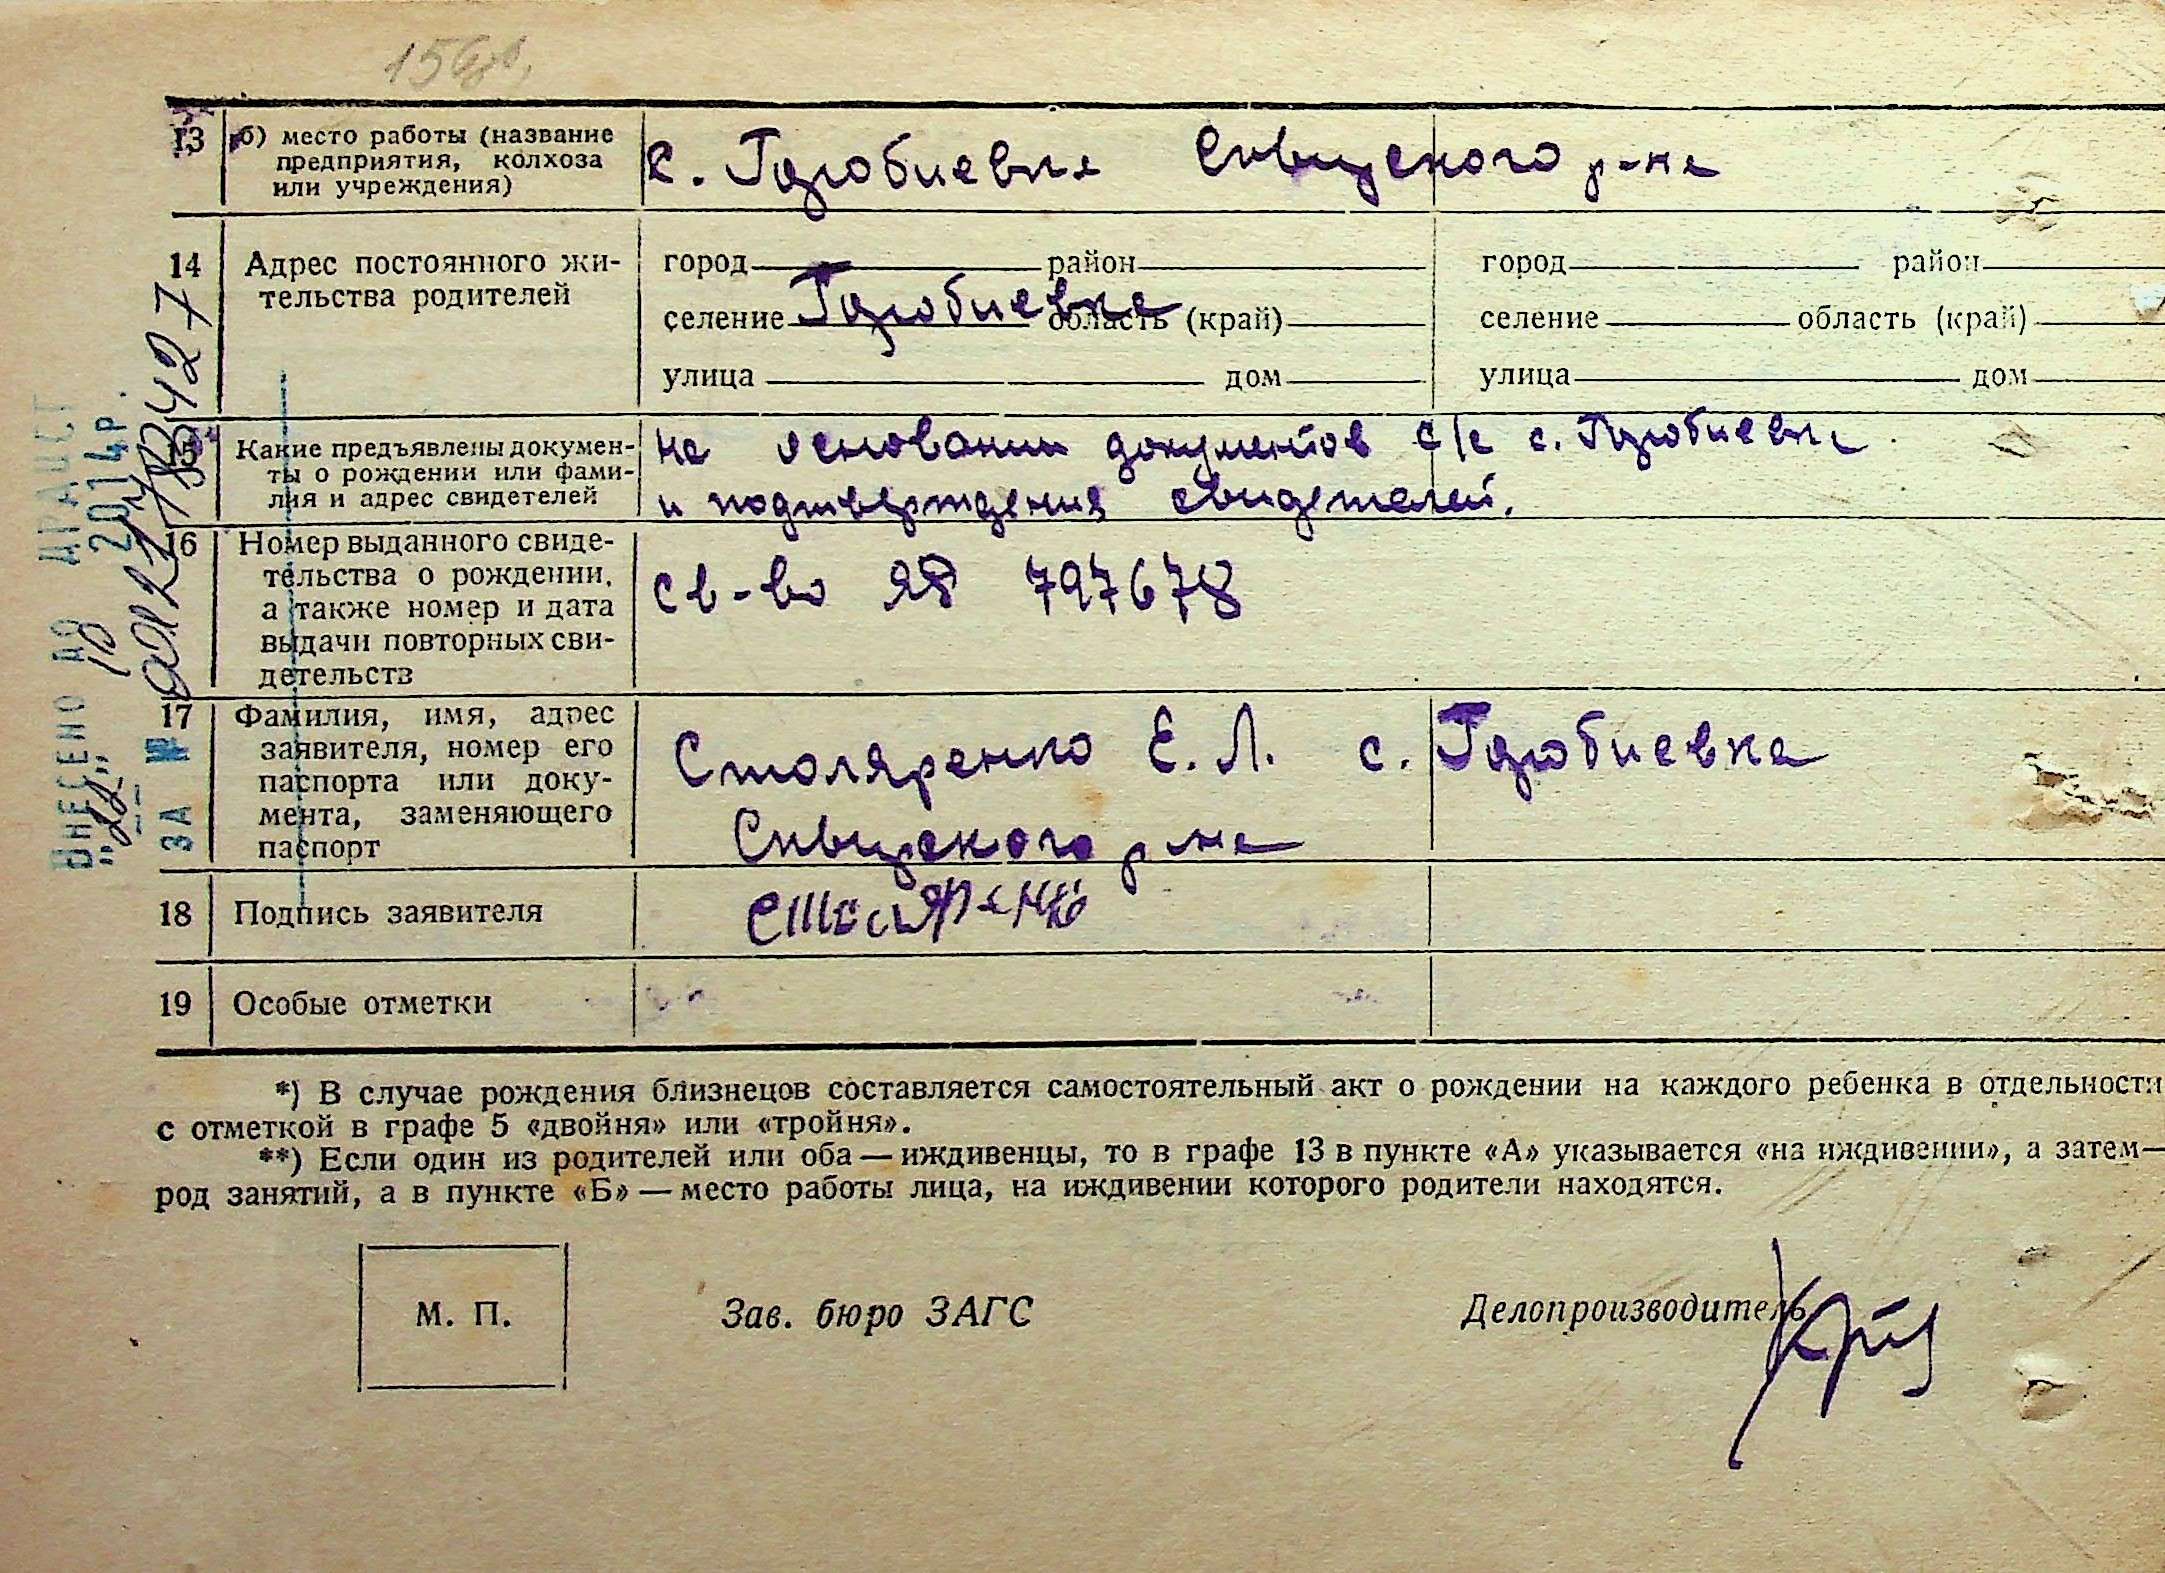 156об.
13 б) место работы (название
предприятия, колхоза
или учреждения)
с. Дзюбиевка Сквирского р-на
14 Адрес постоянного жи-
тельства родителей
город район город район
селение область (край) селение область (край)
улица дом улица дом
15 Какие предъявлены докумен-
ты о рождении или фами-
лия и адрес свидетелей
на основании документов с/с с.
и подтверждения свидетелей.
16 Номер выданного свиде-
тельства о рождении,
а также номер и дата
выдачи повторных сви-
детельств
св-во ЯБ 797678
17 Фамилия, имя, адрес
заявителя, номер его
паспорта или доку-
мента, заменяющего
паспорт
Столяренко Е. Л. с.
р-на
18 Подпись заявителя
Столяренко
19 Особые отметки
*) В случае рождения близнецов составляется самостоятельный акт о рождении на каждого ребенка в отдельности
с отметкой в графе 5 «двойня» или «тройня».
**) Если один из родителей или оба — иждивенцы, то в графе 13 в пункте «А» указывается «на иждивении», а затем —
род занятий, а в пункте «Б» — место работы лица, на иждивении которого родители находятся.
М. П. Зав. бюро ЗАГС Делопроизводитель
ВНЕСЕНО ДО ДРАЦСГ
2014 р.
ЗА №